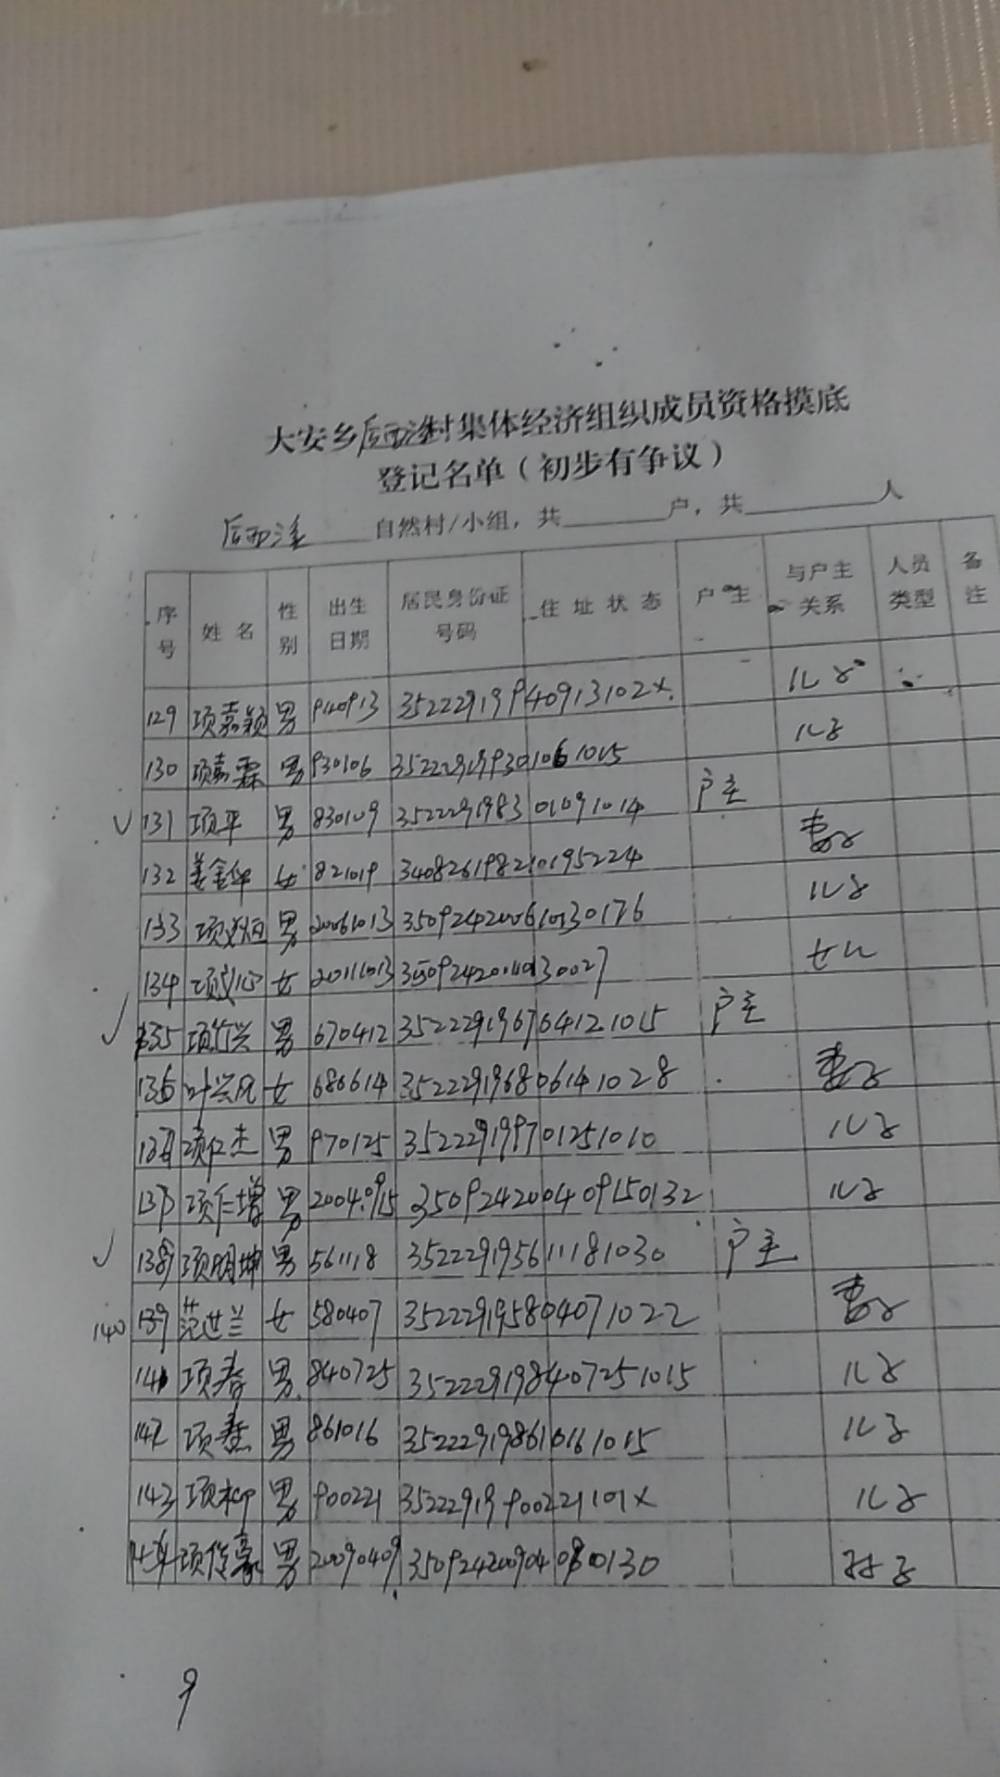 大安乡后西洋村集体经济组织成员资格摸底
登记名单（初步有争议）
后西洋 自然村/小组，共 户，共 人
序号 姓名 性别 出生日期 居民身份证号码 住址状态 户主 与户主关系 人员类型 备注
129 项嘉颖 男 940913 35222919940913102X 儿子
130 项嘉霖 男 930106 352229199301061015 儿子
131 项平 男 830109 352229198301091014 户主
132 姜金华 女 821019 340826198210195224 妻子
133 男 20061013 350924200610130176 儿子
134 项心 女 20111013 女儿
135 项竹兴 男 670412 3522291967 64121015 户主
136 叶兴凤 女 680614 352229196806141028 妻子
项仁杰 男 970125 352229199701251010 儿子
项仁增 男 20040915 350924200409150132 儿子
138 项明坤 男 561118 352229195611181030 户主
140 139 范世兰 女 580407 352229195804071022 妻子
141 项春 男 840725 352229198407251015 儿子
142 项 男 861016 352229198610161015 儿子
143 项 男 900221 35222919900221101X 儿子
项传豪 男 20090409 孙子
9